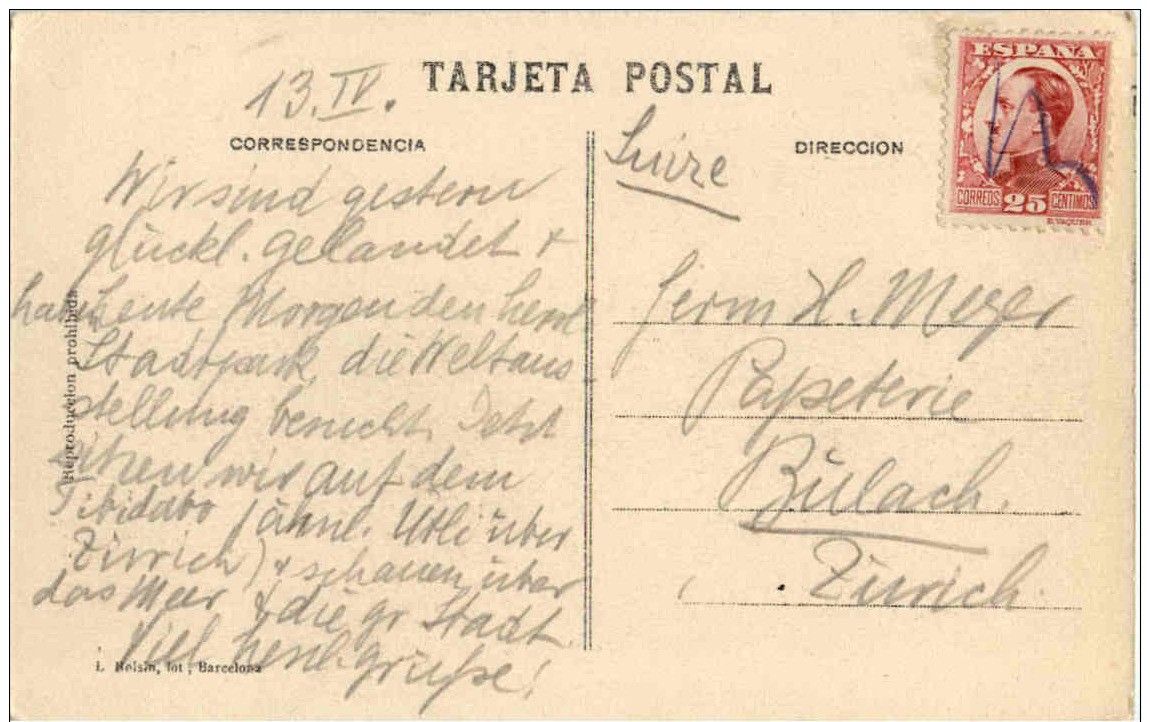 TARJETA POSTAL
13. IV.
CORRESPONDENCIA
Wir sind gestern
glückl. gelandet +
haben heute Morgen den herrl
Stadtpark, die Weltaus
stellung besucht. Jetzt
sitzen wir auf dem
Tibidabo (ähnl. Utli über
Zürich) + schauen über
das Meer & die gr Stadt.
Viel herzl. grüße!
Reproduccion prohibida
L. Roisin, fot., Barcelona
Suize
DIRECCION
ESPAÑA
CORREOS 25 CENTIMOS
Herrn H. Meyer
Papeterie
Bülach.
Zürich.